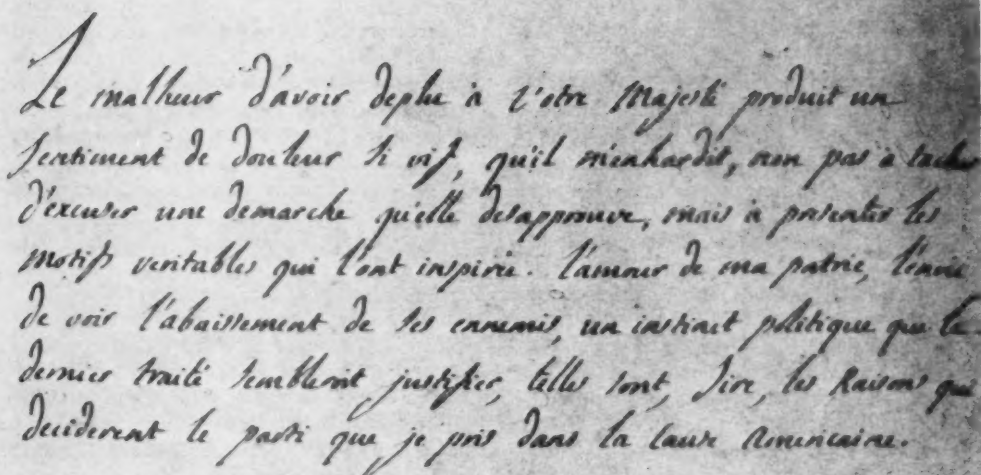 Le malheur d'avoir deplu à Votre Majesté produit un
sentiment de douleur si vif, qu'il m'enhardit, non pas à tacher
d'excuser une demarche qu'elle desapprouve, mais à presenter les
motifs veritables qui l'ont inspirée. l'amour de ma patrie, l'envie
de voir l'abaissement de ses ennemis, un instinct politique que le
dernier traité sembleroit justifier, telles sont, Sire, les Raisons qui
deciderent le parti que je pris dans la Cause Americaine.